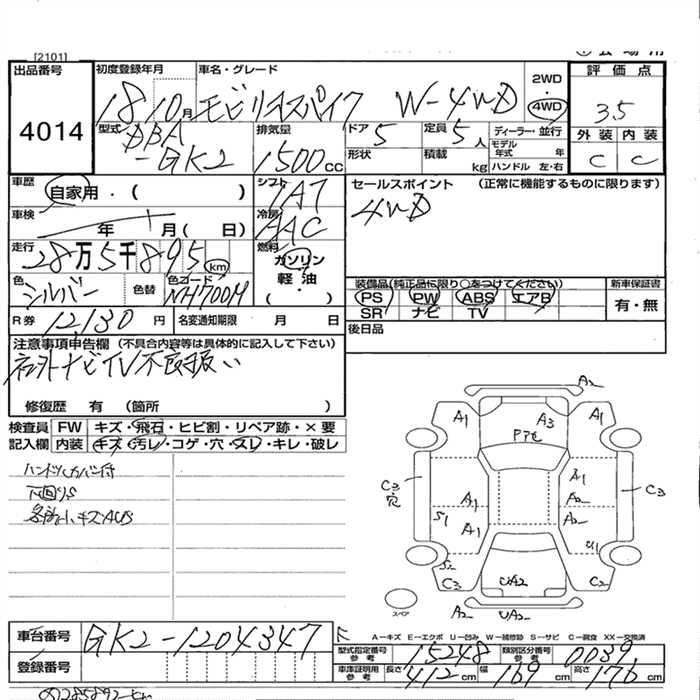 [2101]
出品番号
4014
初度登録年月
18 10月
車名・グレード
モビリオスパイク W-4WD
2WD
4WD
評価点
3.5
外装 内装
C C
型式
DBA
-GK2
排気量
1500cc
ドア 5
定員 5人
ディーラー・並行
モデル年式 年
形状
積載 kg
ハンドル 左・右
車歴
自家用・( )
シフト
IAT
車検
年 月( 日)
冷房
AAC
セールスポイント (正常に機能するものに限ります)
4WD
走行
28万5千895km
燃料
ガソリン
軽油
・( )
色
シルバー
色替
色コード
NH700M
装備品(純正品に限り○をつけてください)
PS PW ABS エアB
SR ナビ TV
新車保証書
有・無
R券 12,130円
名変通知期限 月 日
後日品
注意事項申告欄 (不具合内容等は具体的に記入して下さい)
社外ナビTV不良扱い
修復歴 有 (箇所 )
検査員
記入欄
FW キズ・飛石・ヒビ割・リペア跡・×要
内装 キズ・汚レ・コゲ・穴・スレ・キレ・破レ
ハンドルカバー付
下回りS
各所小キズAUS
A2
A1 A3 A1
Pアモ
C3
穴
A1 A1 A2
C3
S1 A1 A2
U1
S2
C3 UA2 C2
スペア
A2 UA2
A-キズ E-エクボ U-凹み W-補修跡 S-サビ C-腐食 XX-交換済
車台番号
GK2-1204347
登録番号
型式指定番号
参考
15248
類別区分番号
参考
0039
車庫証明用
参考
長さ 412cm
幅 169cm
高さ 176cm